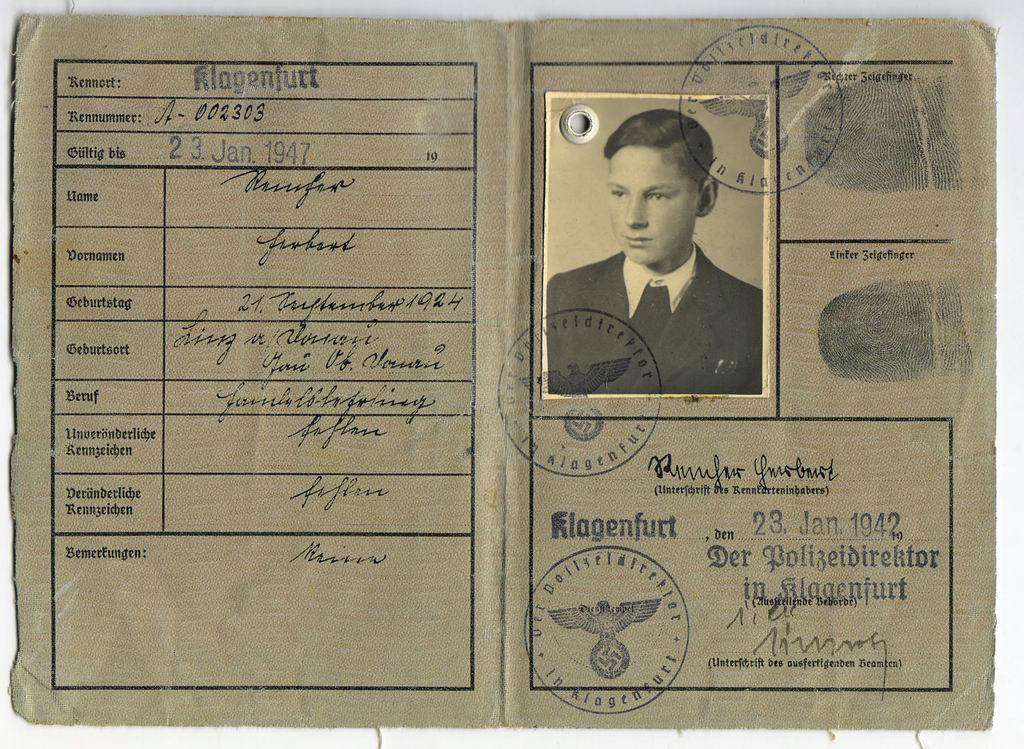 Kennort: Klagenfurt
Kennummer: A - 002303
Gültig bis 23. Jan. 1947 19
Name
Vornamen Herbert
Geburtstag 21. September 1924
Geburtsort Linz a. Donau
Gau Ob. Donau
Beruf Handelslehrling
Unveränderliche
Kennzeichen fehlen
Veränderliche
Kennzeichen fehlen
Bemerkungen: Keine
Der Polizeidirektor
in Klagenfurt
Rechter Zeigefinger
Linker Zeigefinger
Der Polizeidirektor
in Klagenfurt
Herbert
(Unterschrift des Kennkarteninhabers)
Klagenfurt, den 23. Jan. 1942 19
Der Polizeidirektor
in Klagenfurt
(Ausstellende Behörde)
Der Polizeidirektor
Dienststempel
in Klagenfurt
(Unterschrift des ausfertigenden Beamten)